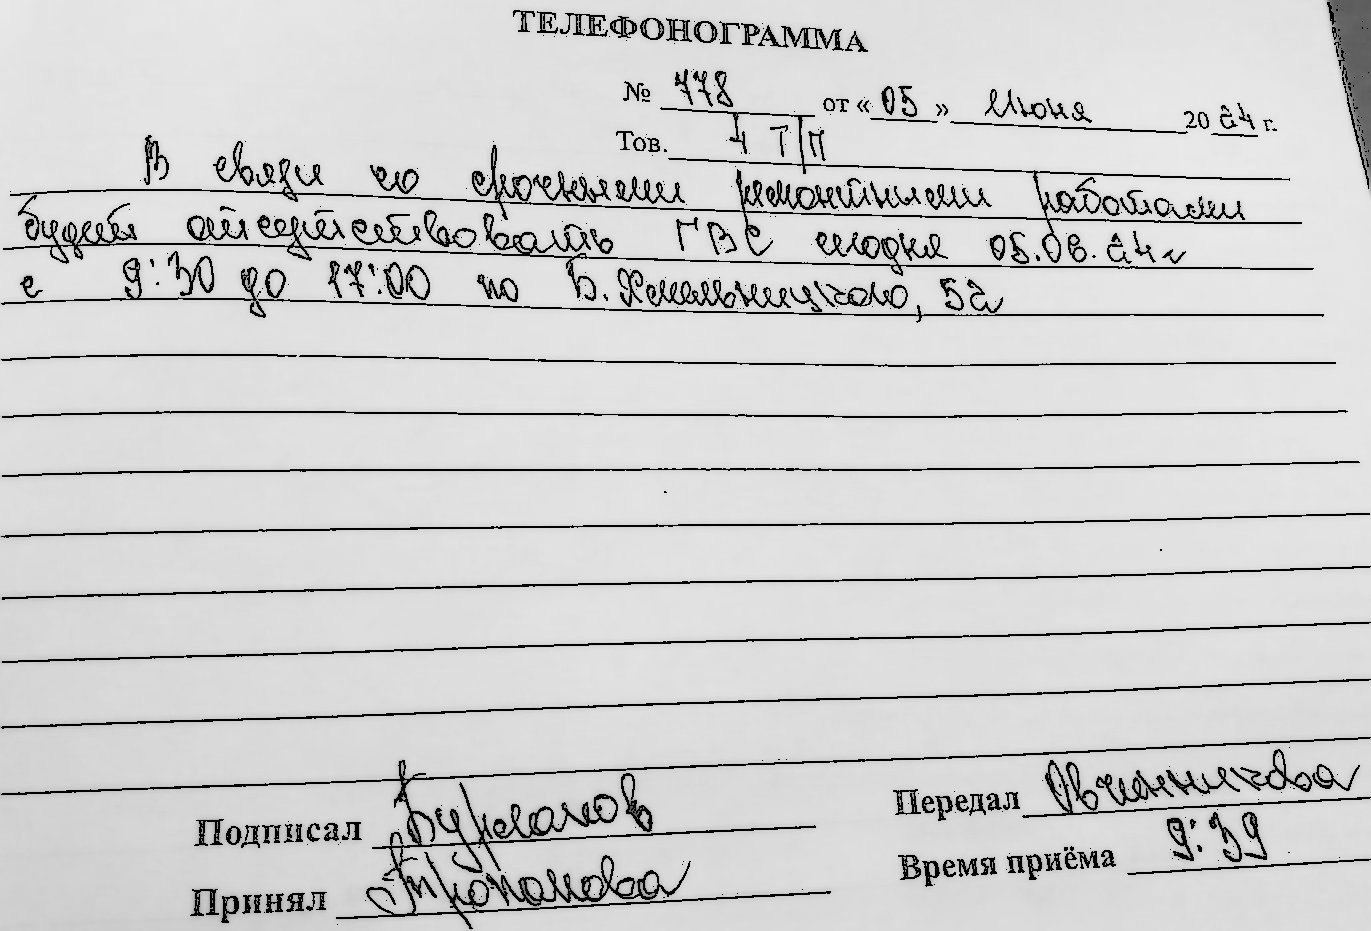 ТЕЛЕФОНОГРАММА
№ 778 от «05» Июня 2024 г.
Тов. ЧТП
В связи со срочными ремонтными работами
будет отсутствовать ГВС сегодня 05.06.24 г
с 9:30 до 17:00 по Б. Хмельницкого, 52
Подписал Бурланов Передал Овчинникова
Принял Время приёма 9:39